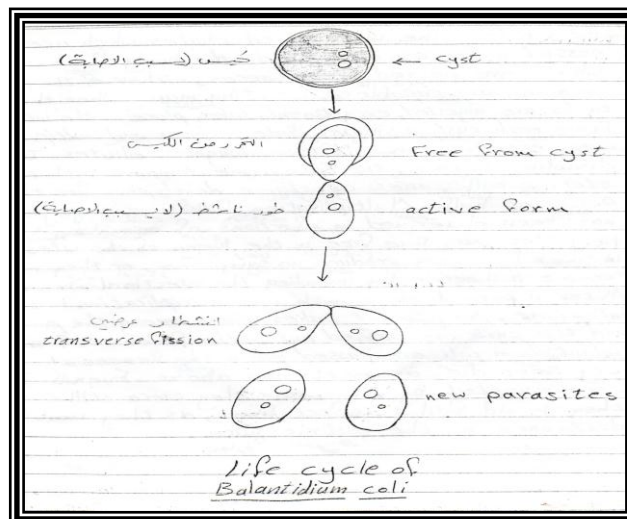 كيس (يسبب الاصابة)
← cyst
التحرر من الكيس
Free from cyst
طور ناشط (لا يسبب الاصابة)
active form
انشطار عرضي
transverse fission
new parasites
Life cycle of
Balantidium coli